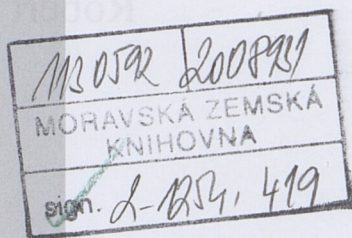 Robert
1130592 2008931
MORAVSKÁ ZEMSKÁ
KNIHOVNA
sign. 2-1254, 419